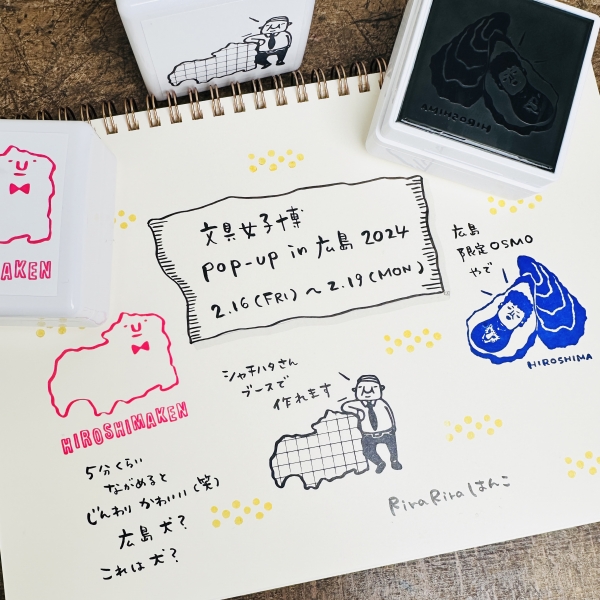 文具女子博
POP-UP in 広島 2024
2.16(FRI)～2.19(MON)
広島
限定OSMO
やで
HIROSHIMA
HIROSHIMA
AKEN
HIROSHIMAKEN
シャチハタさん
ブースで
作れます
5分くらい
ながめると
じんわりかわいい(笑)
広島犬?
これは犬?
RiraRiraはんこ